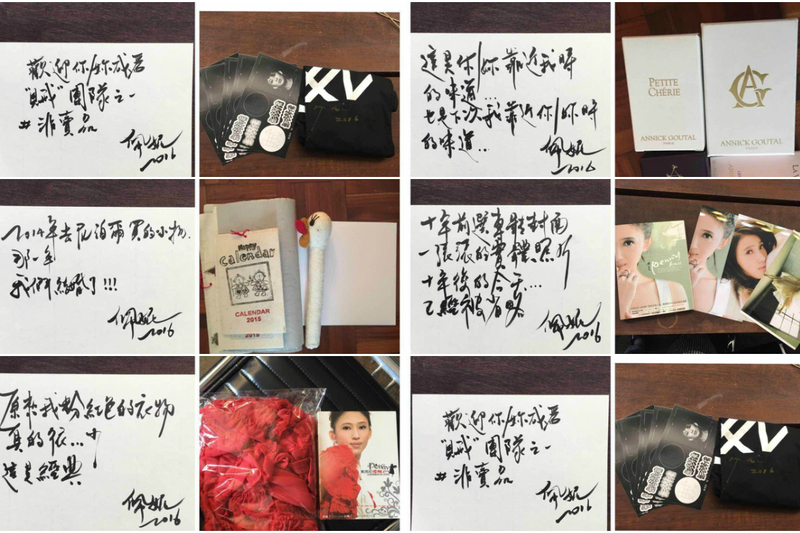 歡迎你/妳成為
"賊"團隊之一
#非賣品
佩妮
2016
XV
2016
這是你/妳靠近我時
的味道...
也是下次我靠近你/妳時
的味道..
佩妮
2016
PETITE
CHÉRIE
ANNICK GOUTAL
PARIS
AG
ANNICK GOUTAL
PARIS
2014年去尼泊爾買的小物.
那一年
我們結婚了!!!
佩妮
2016
Happy
Calendar
CALENDAR
2015
十年前
一張張的實體照片
十年後的今天....
佩妮
2016
原來我粉紅色的衣物
真的很...少
這是經典
佩妮
2016
歡迎你/妳成為
"賊"團隊之一
#非賣品
佩妮
2016
XV
2016